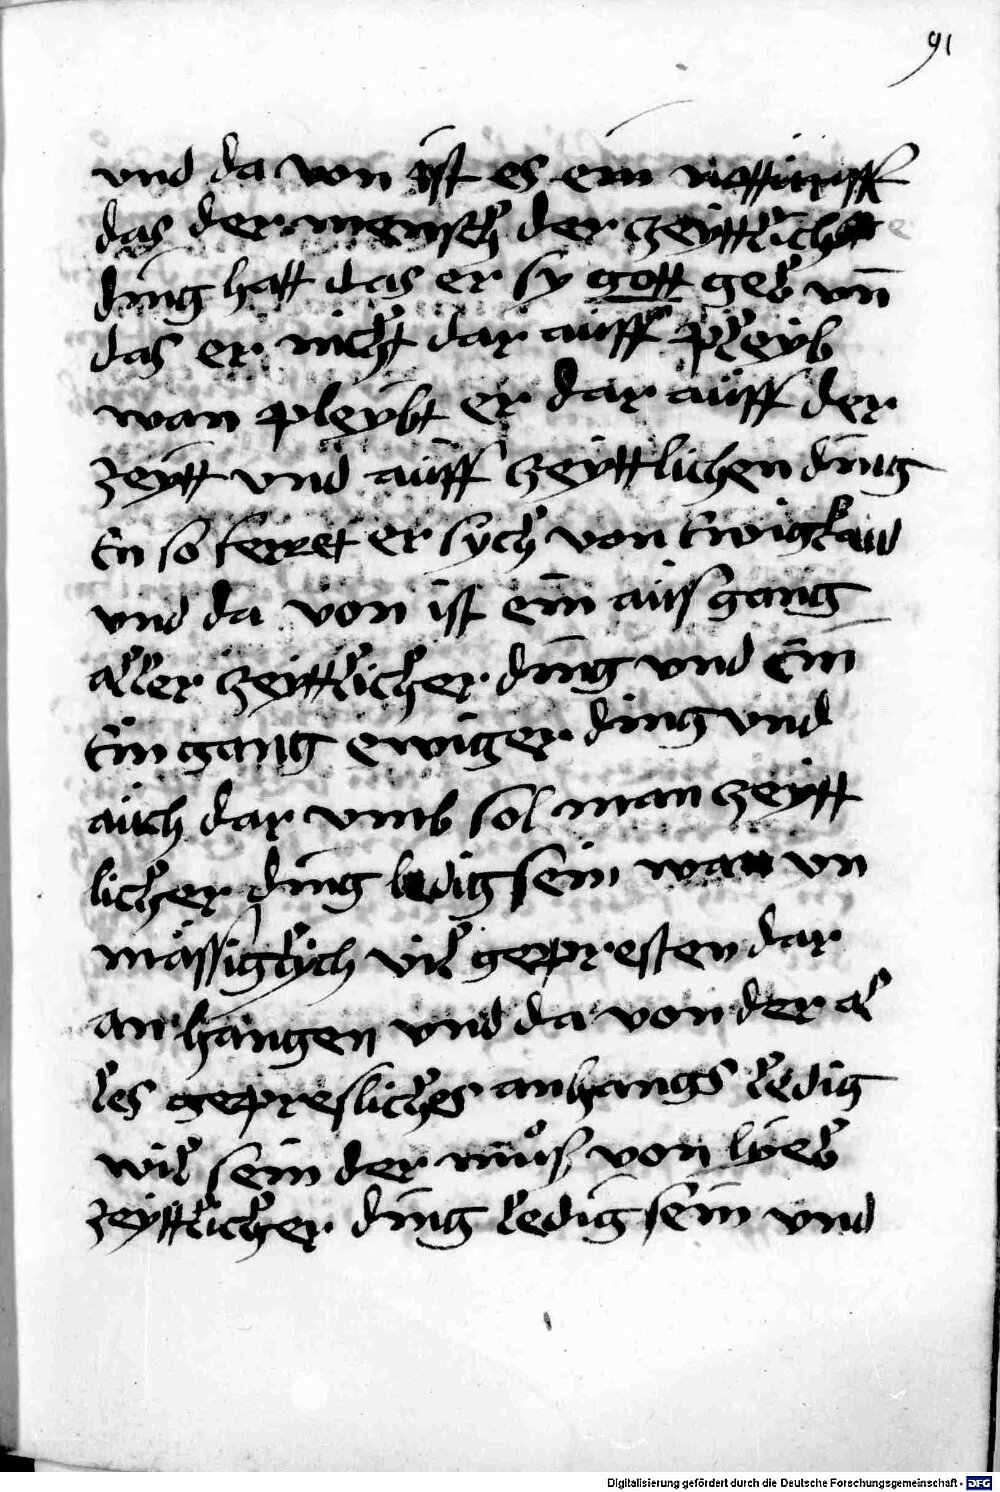 91
und da von ist es ein
das der mensch der zeyttlich
ding hatt das er sy gott geb vn̄
das er nicht dar auff pleyb
wan pleybt er dar auff der
zeytt vnd auff zeyttlichen ding
en so ferret er sych von ewigkaid
vnd da von ist ein aüsgang
aller zeyttlicher ding vnd ein
Eingang ewiger ding vnd
auch dar vmb sol man zeytt
licher ding ledig sein wan vn
mässiglych vil gepresten dar
an hangen vnd da von der al
les gepresliches anhangs ledig
wil sein der müͦß von lyeb
zeyttlicher ding ledig sein vnd
Digitalisierung gefördert durch die Deutsche Forschungsgemeinschaft - DFG